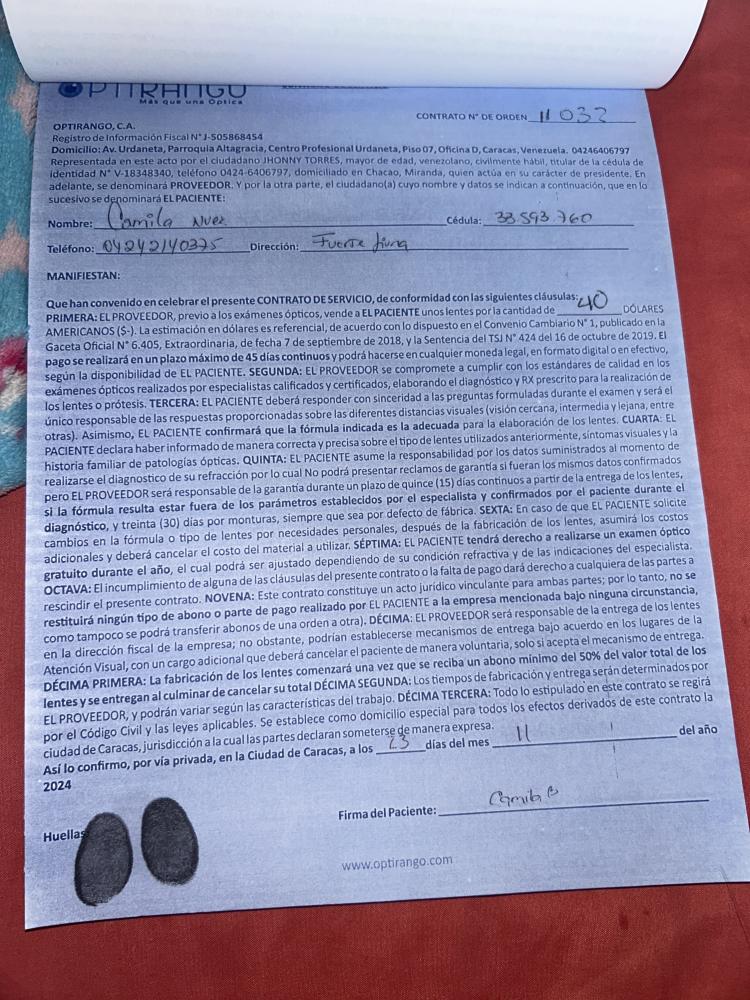 OPTIRANGO
Más que una Óptica
CONTRATO N° DE ORDEN 11032
OPTIRANGO, C.A.
Registro de Información Fiscal N° J-505868454
Domicilio: Av. Urdaneta, Parroquia Altagracia, Centro Profesional Urdaneta, Piso 07, Oficina D, Caracas, Venezuela. 04246406797
Representada en este acto por el ciudadano JHONNY TORRES, mayor de edad, venezolano, civilmente hábil, titular de la cédula de
identidad N° V-18348340, teléfono 0424-6406797, domiciliado en Chacao, Miranda, quien actúa en su carácter de presidente. En
adelante, se denominará PROVEEDOR. Y por la otra parte, el ciudadano(a) cuyo nombre y datos se indican a continuación, que en lo
sucesivo se denominará EL PACIENTE:
Nombre: Camila Nuez Cédula: 33.593.760
Teléfono: 04242140375 Dirección: Fuerte tiuna
MANIFIESTAN:
Que han convenido en celebrar el presente CONTRATO DE SERVICIO, de conformidad con las siguientes cláusulas:
PRIMERA: EL PROVEEDOR, previo a los exámenes ópticos, vende a EL PACIENTE unos lentes por la cantidad de 40 DÓLARES
AMERICANOS ($-). La estimación en dólares es referencial, de acuerdo con lo dispuesto en el Convenio Cambiario N° 1, publicado en la
Gaceta Oficial N° 6.405, Extraordinaria, de fecha 7 de septiembre de 2018, y la Sentencia del TSJ N° 424 del 16 de octubre de 2019. El
pago se realizará en un plazo máximo de 45 días continuos y podrá hacerse en cualquier moneda legal, en formato digital o en efectivo,
según la disponibilidad de EL PACIENTE. SEGUNDA: EL PROVEEDOR se compromete a cumplir con los estándares de calidad en los
exámenes ópticos realizados por especialistas calificados y certificados, elaborando el diagnóstico y RX prescrito para la realización de
los lentes o prótesis. TERCERA: EL PACIENTE deberá responder con sinceridad a las preguntas formuladas durante el examen y será el
único responsable de las respuestas proporcionadas sobre las diferentes distancias visuales (visión cercana, intermedia y lejana, entre
otras). Asimismo, EL PACIENTE confirmará que la fórmula indicada es la adecuada para la elaboración de los lentes. CUARTA: EL
PACIENTE declara haber informado de manera correcta y precisa sobre el tipo de lentes utilizados anteriormente, síntomas visuales y la
historia familiar de patologías ópticas. QUINTA: EL PACIENTE asume la responsabilidad por los datos suministrados al momento de
realizarse el diagnostico de su refracción por lo cual No podrá presentar reclamos de garantía si fueran los mismos datos confirmados
pero EL PROVEEDOR será responsable de la garantía durante un plazo de quince (15) días continuos a partir de la entrega de los lentes,
si la fórmula resulta estar fuera de los parámetros establecidos por el especialista y confirmados por el paciente durante el
diagnóstico, y treinta (30) días por monturas, siempre que sea por defecto de fábrica. SEXTA: En caso de que EL PACIENTE solicite
cambios en la fórmula o tipo de lentes por necesidades personales, después de la fabricación de los lentes, asumirá los costos
adicionales y deberá cancelar el costo del material a utilizar. SÉPTIMA: EL PACIENTE tendrá derecho a realizarse un examen óptico
gratuito durante el año, el cual podrá ser ajustado dependiendo de su condición refractiva y de las indicaciones del especialista.
OCTAVA: El incumplimiento de alguna de las cláusulas del presente contrato o la falta de pago dará derecho a cualquiera de las partes a
rescindir el presente contrato. NOVENA: Este contrato constituye un acto jurídico vinculante para ambas partes; por lo tanto, no se
restituirá ningún tipo de abono o parte de pago realizado por EL PACIENTE a la empresa mencionada bajo ninguna circunstancia,
como tampoco se podrá transferir abonos de una orden a otra). DÉCIMA: EL PROVEEDOR será responsable de la entrega de los lentes
en la dirección fiscal de la empresa; no obstante, podrían establecerse mecanismos de entrega bajo acuerdo en los lugares de la
Atención Visual, con un cargo adicional que deberá cancelar el paciente de manera voluntaria, solo si acepta el mecanismo de entrega.
DÉCIMA PRIMERA: La fabricación de los lentes comenzará una vez que se reciba un abono mínimo del 50% del valor total de los
lentes y se entregan al culminar de cancelar su total DÉCIMA SEGUNDA: Los tiempos de fabricación y entrega serán determinados por
EL PROVEEDOR, y podrán variar según las características del trabajo. DÉCIMA TERCERA: Todo lo estipulado en este contrato se regirá
por el Código Civil y las leyes aplicables. Se establece como domicilio especial para todos los efectos derivados de este contrato la
ciudad de Caracas, jurisdicción a la cual las partes declaran someterse de manera expresa.
Así lo confirmo, por vía privada, en la Ciudad de Caracas, a los 23 días del mes 11 del año
2024
Firma del Paciente: Camila
Huellas
www.optirango.com